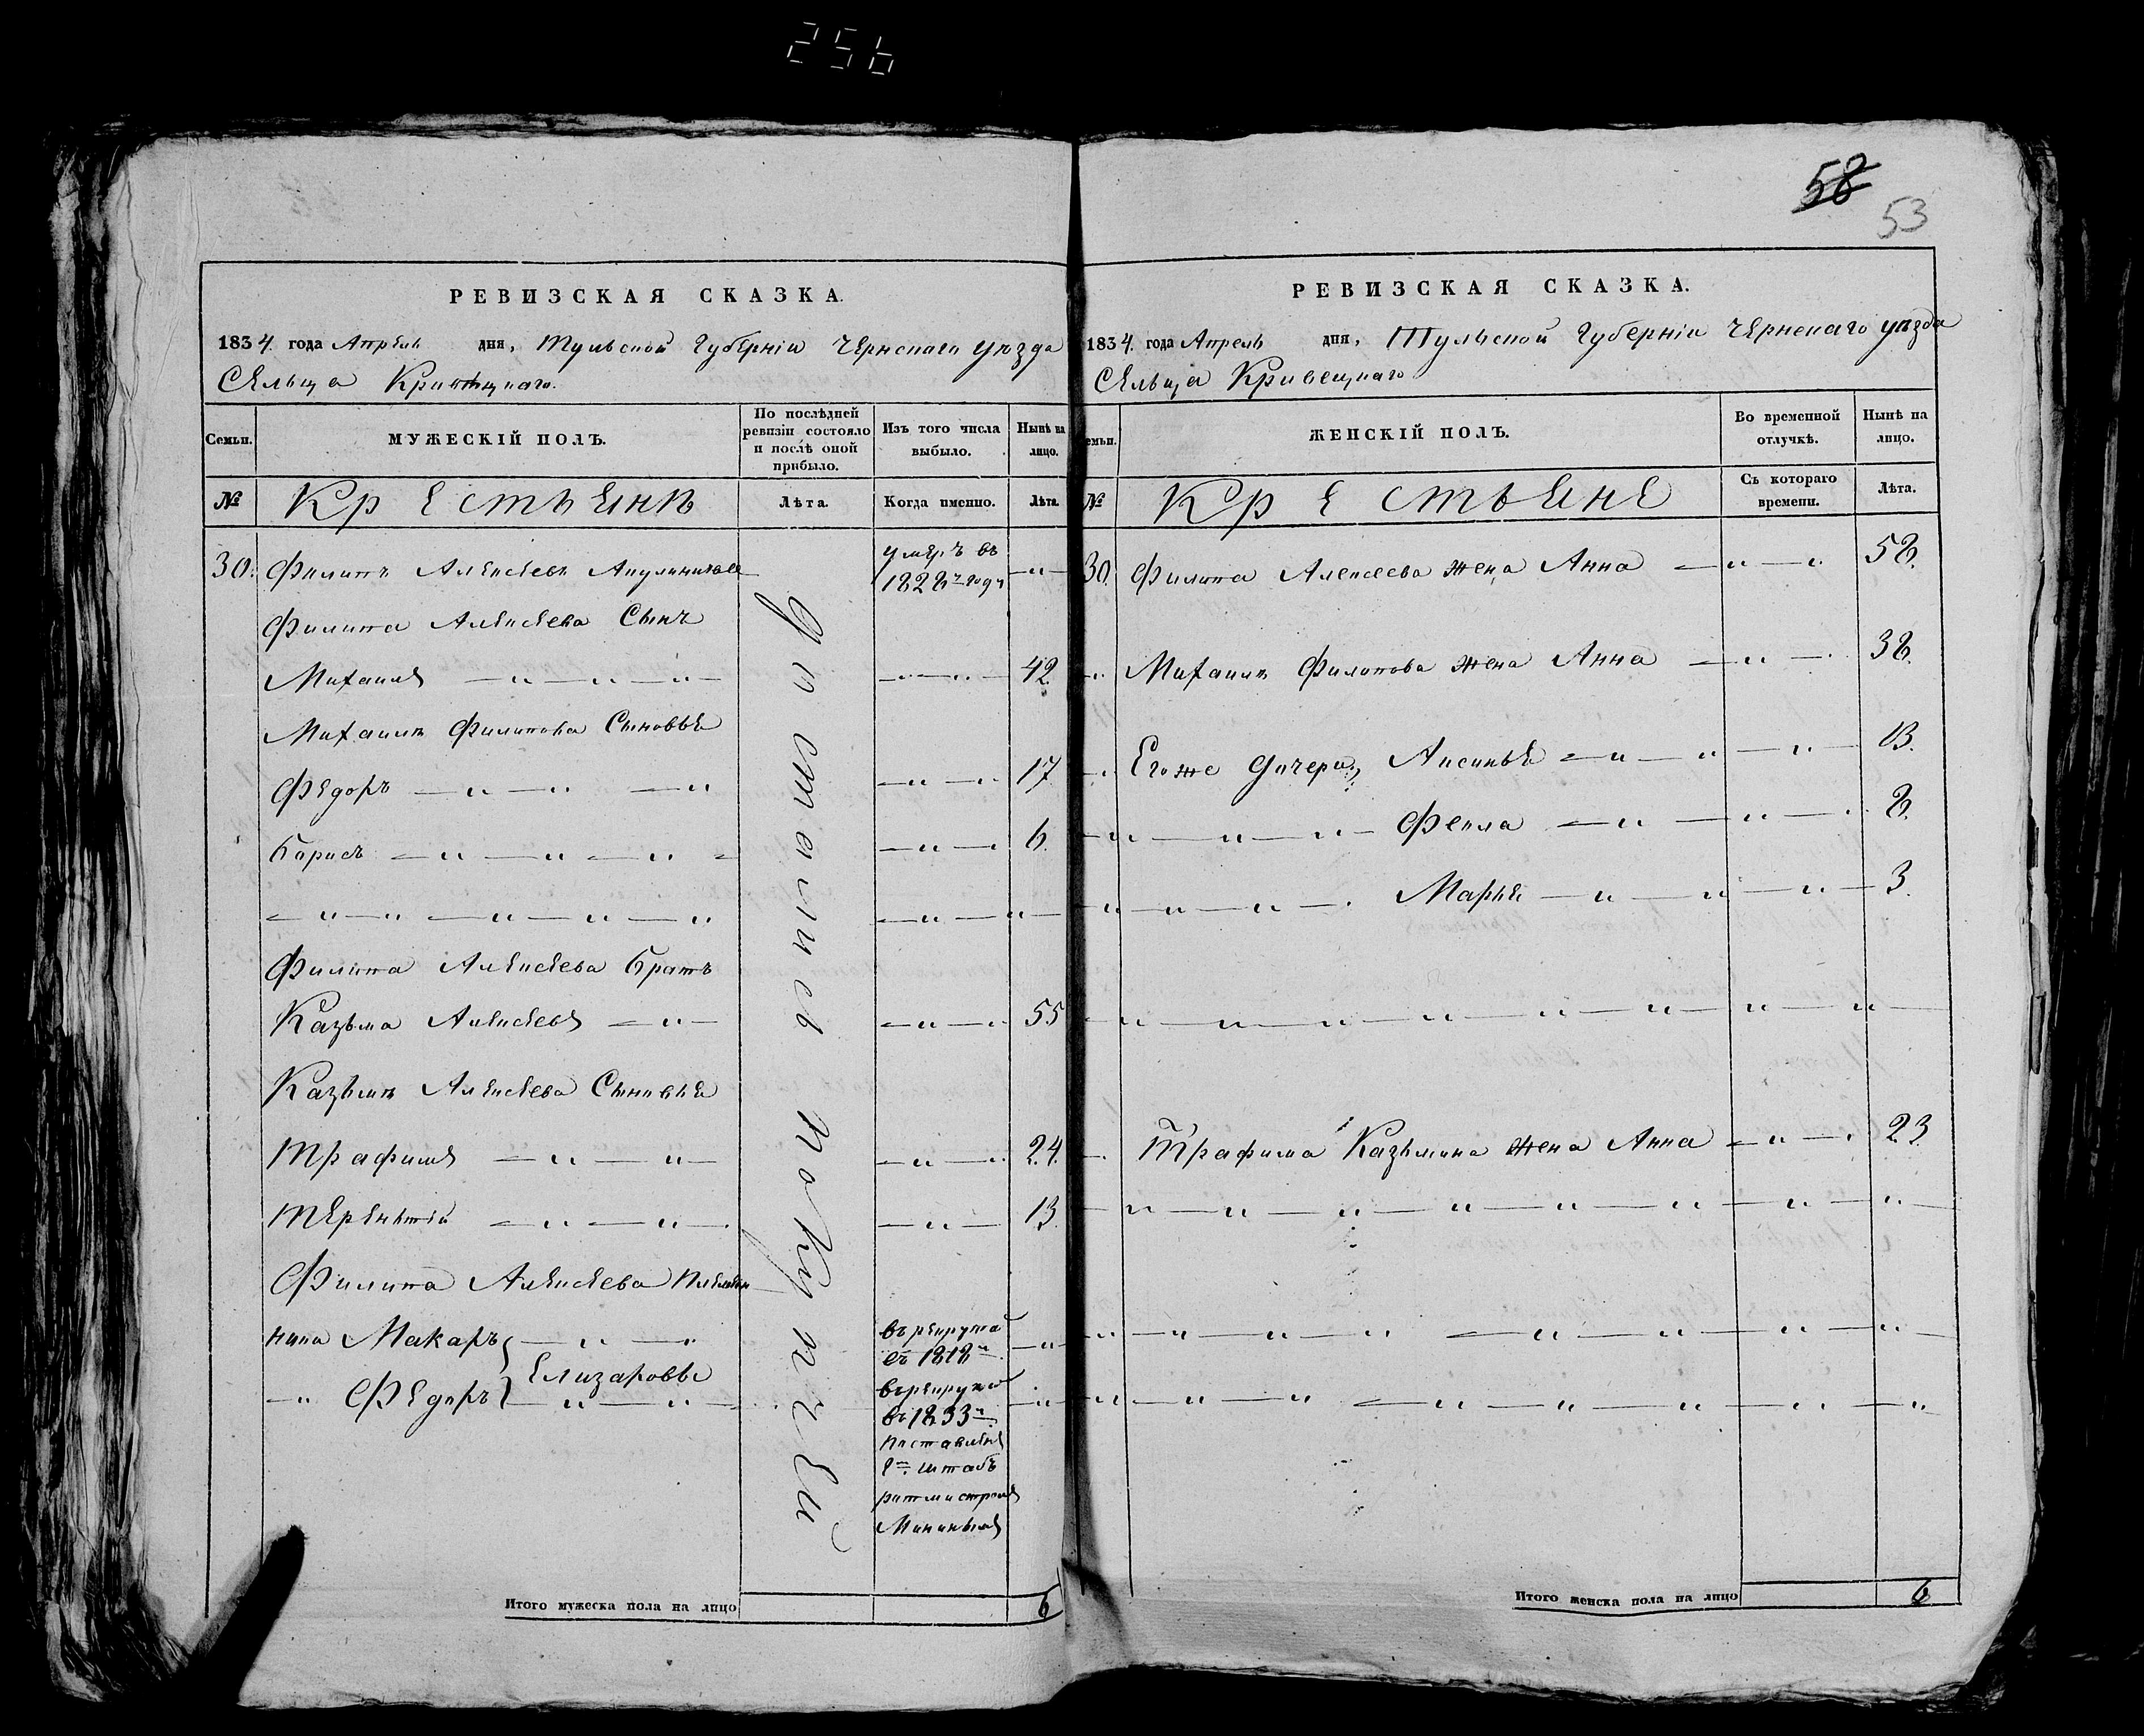 256
58
53
РЕВИЗСКАЯ СКАЗКА.
1834. года Апрель дня, Тульской Губерніи Чернскаго уѣзда
Сельца Кривецкаго.
Семьи.
МУЖЕСКІЙ ПОЛЪ.
По послѣдней ревизіи состояло и послѣ оной прибыло.
Изъ того числа выбыло.
Нынѣ на лицо.
№
Крестьянѣ
Лѣта.
Когда именно.
Лѣта.
30. Филипъ Алексѣевъ умеръ въ 1828м году —"
Филипа Алексѣева Сынъ
Михаила — " — " — " — 42
Михаилы Филипова Сыновья
Федоръ — " — " — " — " — 17
Борисъ — " — " — " — " — 6.
— " — " — " — " — " — " — " —
Филипа Алексѣева братъ
Казьма Алексѣевъ — " — " — 55
Казьмы Алексѣева Сыновья
Трафимъ — " — " — " — 24.
Терентій — " — " — " — 13.
Филипа Алексѣева племян
ника Макаръ — " — въ рекруты въ 1818м — " —
— " Федоръ } Елизаровы — " — въ рекруты въ 1833м — " —
поставленъ
г-м штабъ
ротмистромъ
Мининымъ
достались покупкей
Итого мужеска пола на лицо 6
РЕВИЗСКАЯ СКАЗКА.
1834. года Апрель дня, Тульской Губерніи Чернскаго уѣзда
Сельца Кривецкаго
Семьи.
ЖЕНСКІЙ ПОЛЪ.
Во временной отлучкѣ.
Нынѣ на лицо.
№
Крестьяне
Съ котораго времени.
Лѣта.
30. Филипа Алексеева жена Анна — " — " 58.
— " Михаилы Филипова жена Анна — " — 38.
— " Его же дочери, Аксинья — " — " — " — 13.
— " — " — " — Фекла — " — " — 8.
— " — " — " — Марья — " — " — " — 3.
— " — " — " — " — " — " — " — " —
— Трафима Казьмина жена Анна — " — 23
— " — " — " — " — " — " — " — " —
— " — " — " — " — " — " — " — " —
— " — " — " — " — " — " — " — " —
Итого женска пола на лицо 6